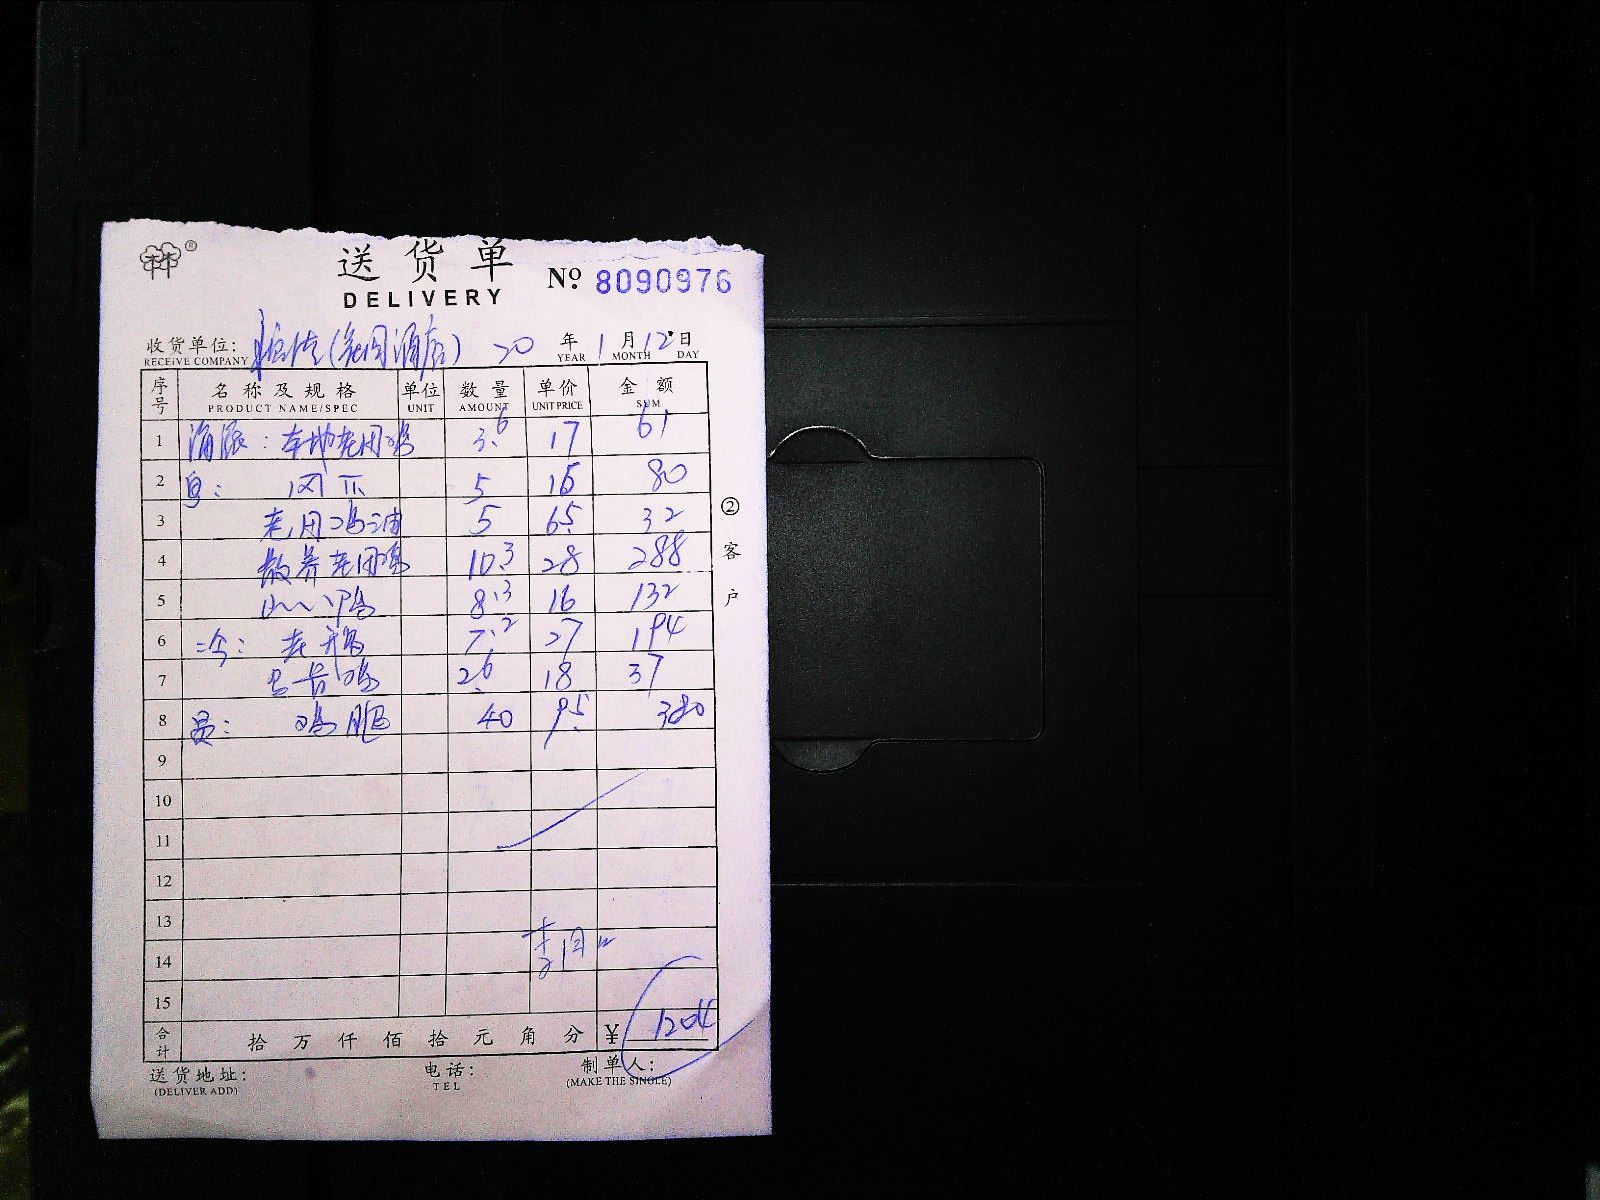 林®
送货单
DELIVERY
№ 8090976
收货单位: (花园酒店) 20 年 1 月 12 日
RECEIVE COMPANY YEAR MONTH DAY
序号 名称及规格 单位 数量 单价 金额
PRODUCT NAME/SPEC UNIT AMOUNT UNIT PRICE SUM
1 本地老用鸡 3.6 17 61
2 5 16 80
3 老用鸡油 5 6.5 32
4 散养老用鸡 10.3 28 288
5 鸭 8.3 16 132
6 老鹅 7.2 27 194
7 鸡 2.6 18 37
8 鸡 40 9.5 380
9
10
11
12
13
14
15
合计 拾 万 仟 佰 拾 元 角 分 ¥ 1204
送货地址: 电话: 制单人:
(DELIVER ADD) TEL (MAKE THE SINGLE)
②客户